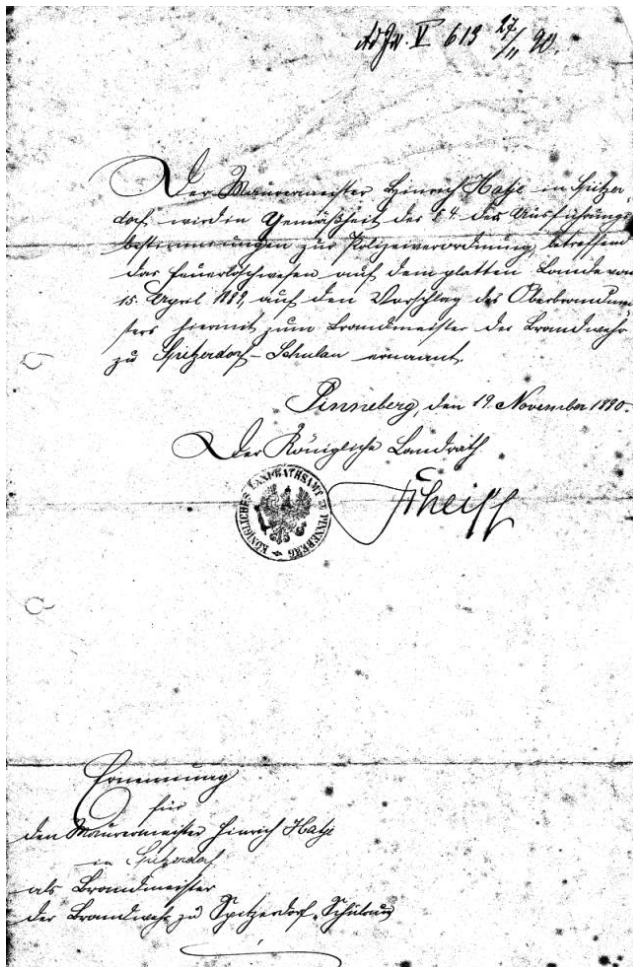 V 613 27/11 90.
Der Maurermeister Hinrich Hatje in Spitzer-
dorf wird in Gemäßheit des § 4 der Ausführungs-
bestimmungen zur Polizeiverordnung, betreffend
das Feuerlöschwesen auf dem platten Lande vom
15. April 1889, auf den Vorschlag des Oberbrandmei-
sters hiermit zum Brandmeister der Brandwehr
zu Spitzerdorf-Schulau ernannt.
Pinneberg, den 19. November 1890.
Der Königliche Landrath
KÖNIGLICHES LANDRATHSAMT ZU PINNEBERG
Scheiff
Ernennung
für
den Maurermeister Hinrich Hatje
in Spitzerdorf
als Brandmeister
der Brandwehr zu Spitzerdorf-Schulau